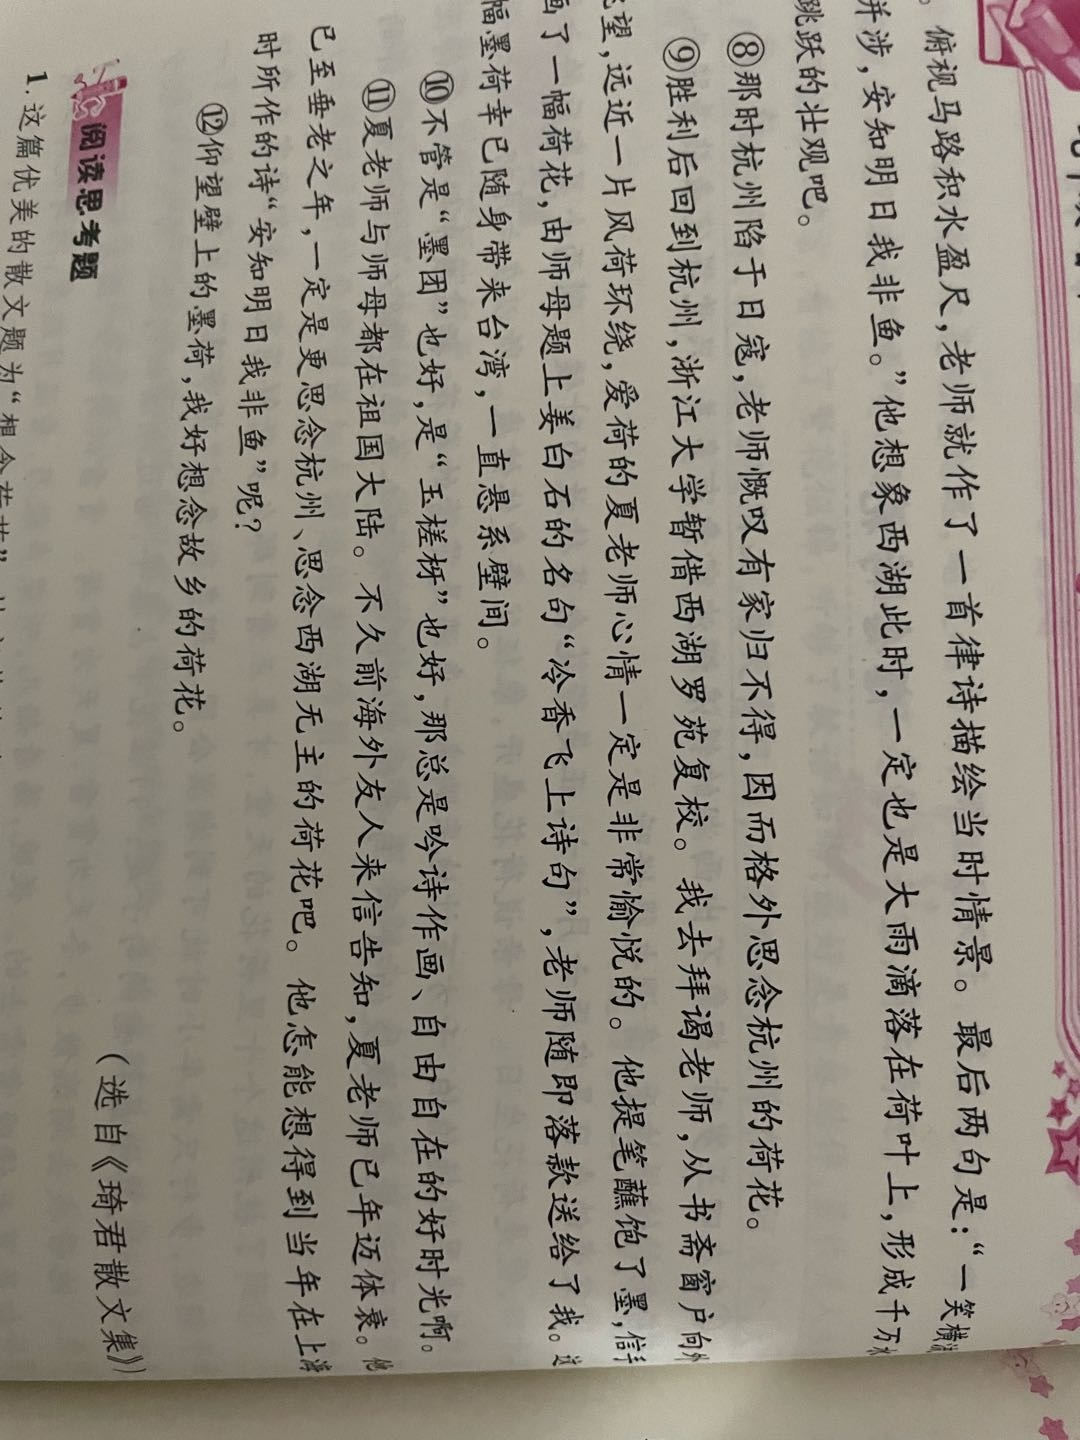 俯视马路积水盈尺，老师就作了一首律诗描绘当时情景。最后两句是：“一笑横
并涉，安知明日我非鱼。”他想象西湖此时，一定也是大雨滴落在荷叶上，形成千万
跳跃的壮观吧。
⑧那时杭州陷于日寇，老师慨叹有家归不得，因而格外思念杭州的荷花。
⑨胜利后回到杭州，浙江大学暂借西湖罗苑复校。我去拜谒老师，从书斋窗户向外
望，远近一片风荷环绕，爱荷的夏老师心情一定是非常愉悦的。他提笔蘸饱了墨，信手
画了一幅荷花，由师母题上姜白石的名句“冷香飞上诗句”，老师随即落款送给了我。这
幅墨荷幸已随身带来台湾，一直悬系壁间。
⑩不管是“墨团”也好，是“玉槎枒”也好，那总是吟诗作画、自由自在的好时光啊。
⑪夏老师与师母都在祖国大陆。不久前海外友人来信告知，夏老师已年迈体衰。他
已至垂老之年，一定是更思念杭州、思念西湖无主的荷花吧。他怎能想得到当年在上海
时所作的诗“安知明日我非鱼”呢？
⑫仰望壁上的墨荷，我好想念故乡的荷花。
（选自《琦君散文集》）
阅读思考题
1. 这篇优美的散文题为“想念荷花”